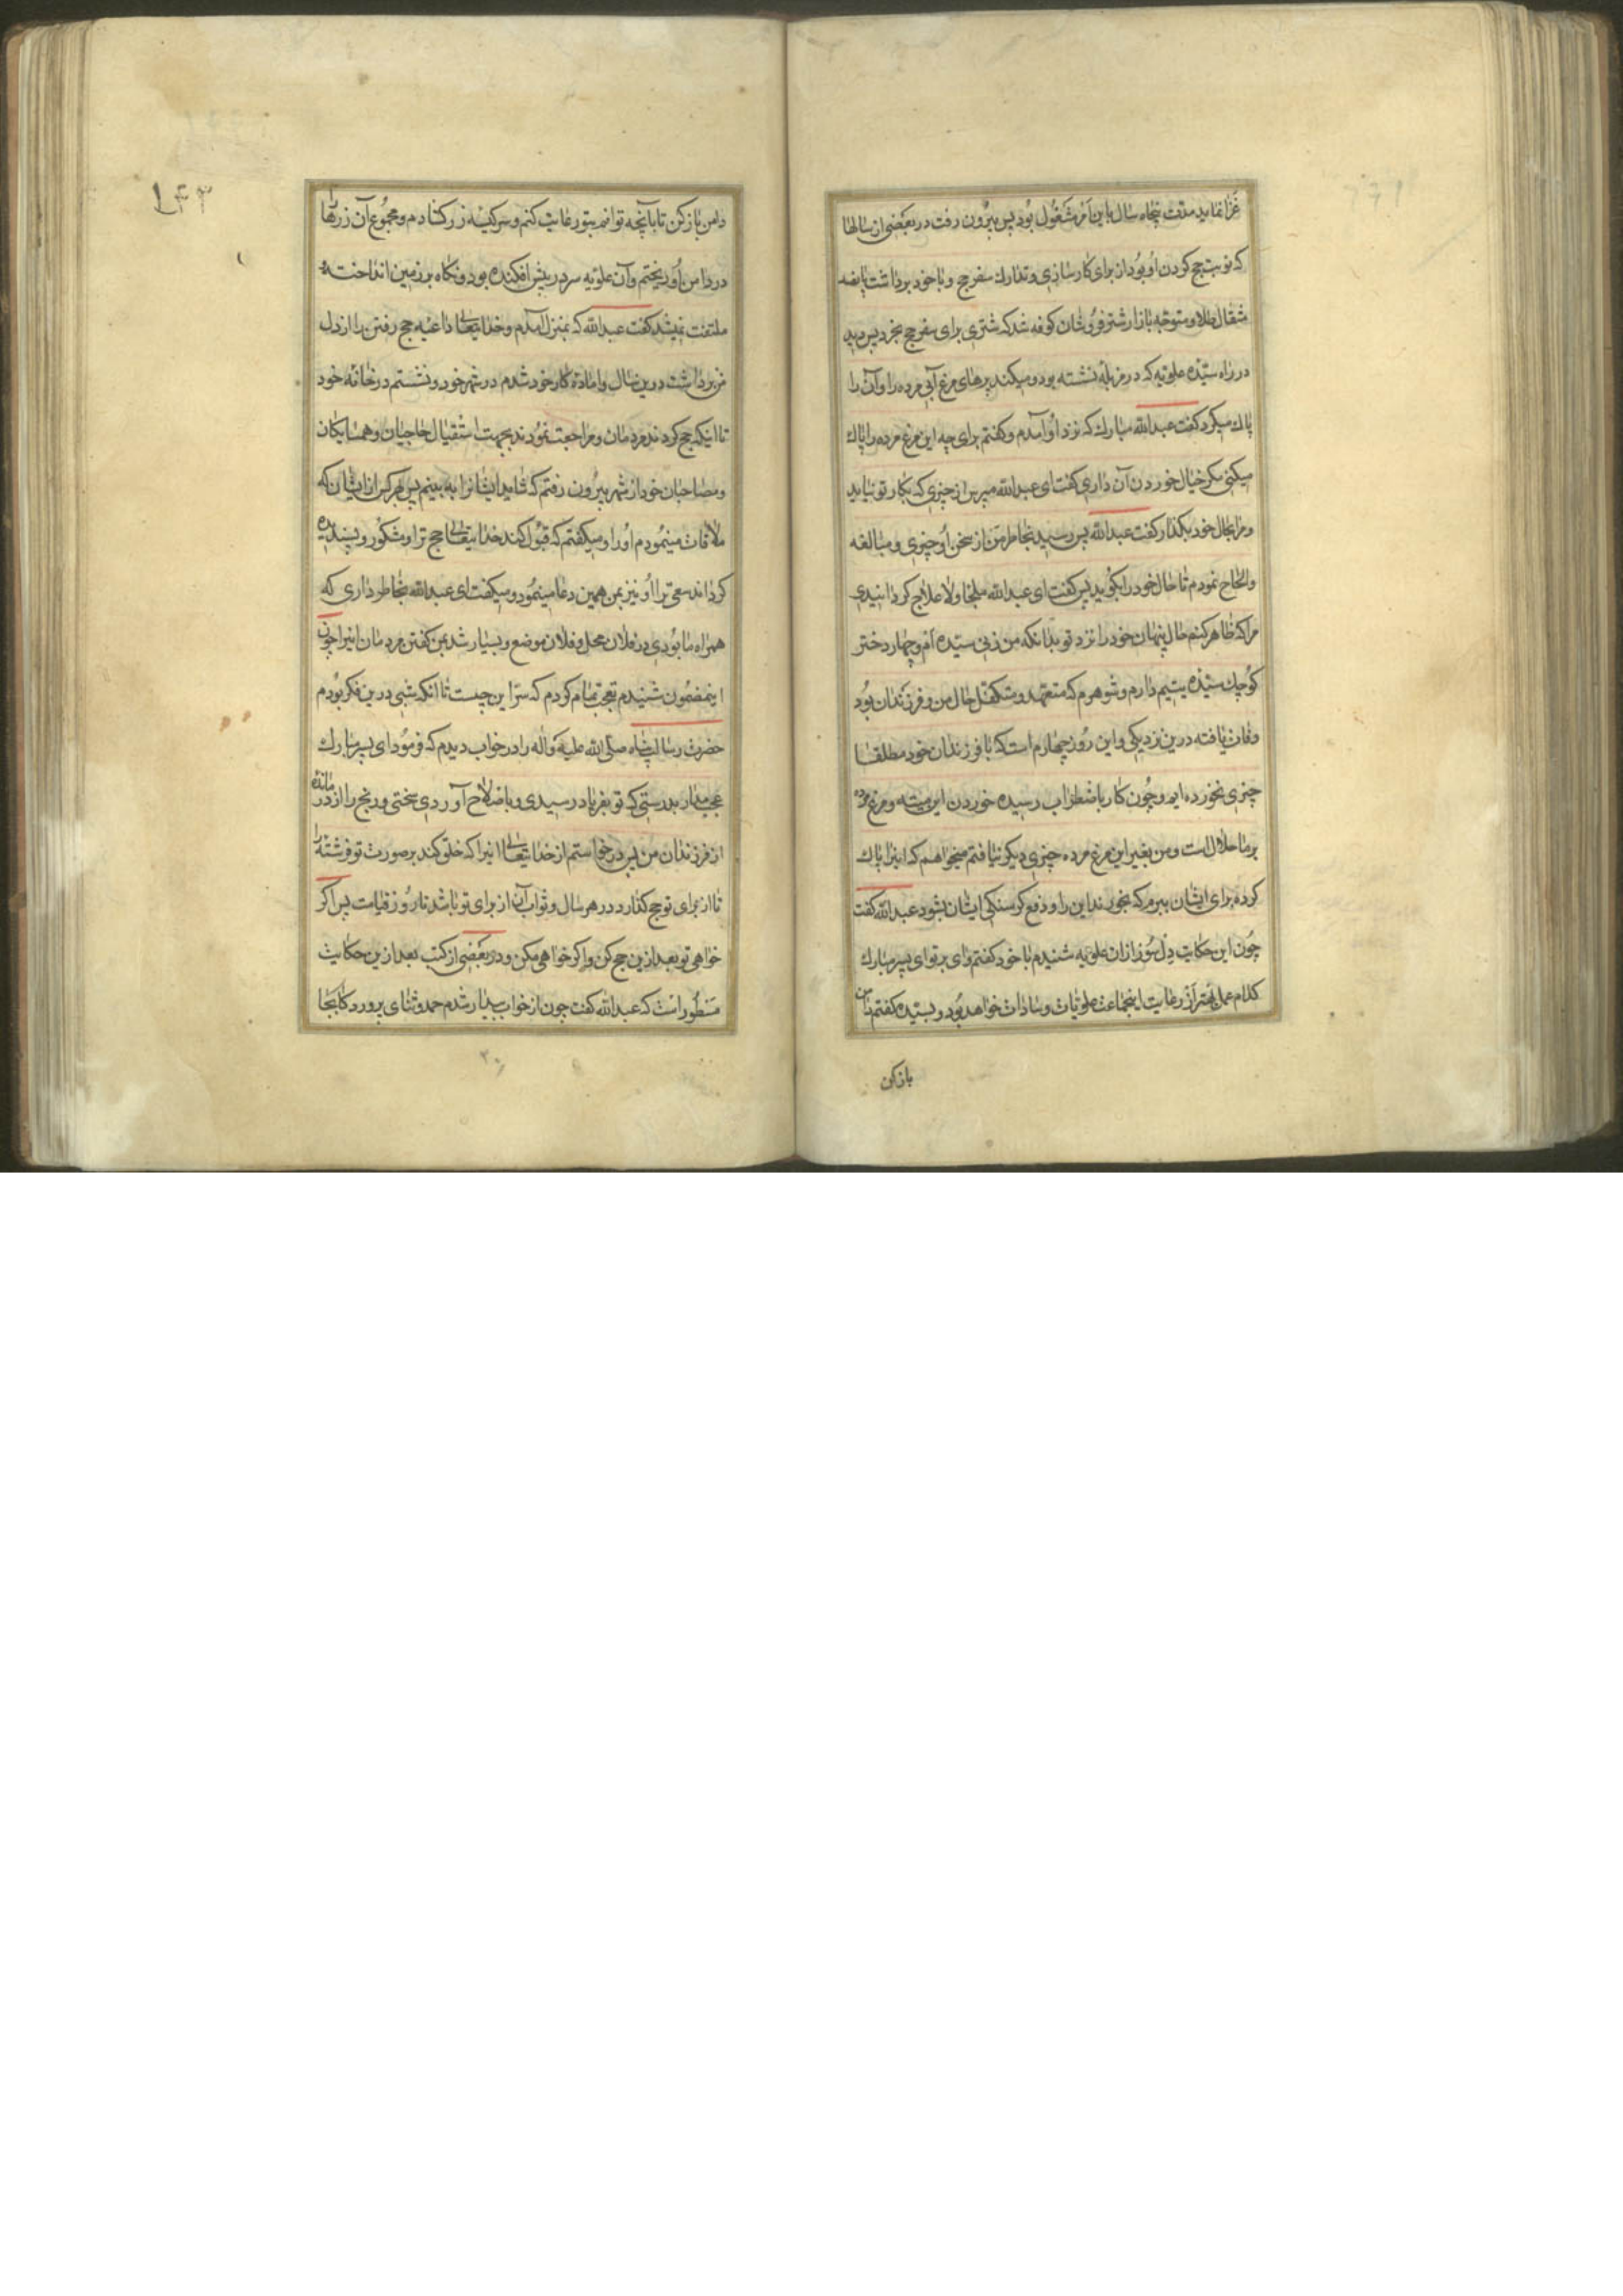 غزا نماید مدت پنجاه سال باین امر مشغول بود پس بیرون رفت در بعضی از سالها
که نوبت حج کردن او بود از برای کارسازی و تدارك سفر حج و با خود برداشت پانصد
مثقال طلا و متوجه بازار شتر فروشان کوفه شد که شتری برای سفر حج بخرد پس دید
در راه سیّده علویه که در مزبله نشسته بود و میکند پرهای مرغ آبی مرده را و آن را
پاك میکرد کفت عبدالله مبارك که نزد او آمدم و کفتم برای چه این مرغ مرده را پاك
میکنی مکر خیال خوردن آن داری کفت ای عبدالله مپرس از چیزی که بکار تو نیاید
و مرا بحال خود بکذار کفت عبدالله پس رسید بخاطر من از سخن او چیزی و مبالغه
و الحاح نمودم تا حال خود را بکوید پس کفت ای عبدالله ملجا و لاعلاج کردانیدی
مرا که ظاهر کنم حال پنهان خود را نزد تو بدانکه من زنی سیده ام و چهار دختر
کوچك سیّده یتیم دارم و شوهرم که متعهد و متکفل حال من و فرزندان بود
وفات یافته درین نزدیکی و این روز چهارم است که با فرزندان خود مطلقا
چیزی نخورده ایم و چون کار باضطراب رسیده خوردن این میته و مرغ مرده
بر ما حلال است و من بغیر این مرغ مرده چیزی دیکر نیافتم میخواهم که اینرا پاك
کرده برای ایشان ببرم که بخورند این را و دفع کرسنکی ایشان بشود عبدالله کفت
چون این حکایت دلسوز از ان علویه شنیدم با خود کفتم وای بر تو ای پسر مبارك
کدام عمل بهتر از رعایت اینجماعت علویات و سادات خواهد بود و بسیّده کفتم دامن
بازکن
دامن بازکن تا بآنچه توانم بتو رعایت کنم و سر کیسه زر کشادم و مجموع آن زرها را
در دامن او ریختم و آن علویه سر در پیش افکنده بود و نکاه بر زمین انداخته
ملتفت نمیشد کفت عبدالله که بمنزل آمدم و خدایتعالی داعیه حج رفتن را از دل
من برداشت درین سال و اماده کار خود شدم در شهر خود و نشستم در خانه خود
تا اینکه حج کردند مردمان و مراجعت نمودند بجهت استقبال حاجیان و همسایکان
و مصاحبان خود از شهر بیرون رفتم که شاید ایشانرا به بینم پس هر کس از ایشان که
ملاقات مینمودم او را و میکفتم که قبول کند خدایتعالی حج ترا و مشکور و پسندیده
کرداند سعی ترا او نیز بمن همین دعا مینمود و میکفت ای عبدالله بخاطر داری که
همراه ما بودی در فلان محل و فلان موضع و بسیار شد بمن کفتن مردمان اینرا چون
اینمضمون شنیدم تعجب تمام کردم که سرّ این چیست تا انکه شبی درین فکر بودم
حضرت رسالت پناه صلی الله علیه و اله را در خواب دیدم که فرمود ای پسر مبارك
عجب مدار بدرستی که تو بفریاد رسیدی و باصلاح آوردی سختی و رنج را از درمانده
از فرزندان من پس درخواستم از خدایتعالی اینرا که خلق کند بر صورت تو فرشته را
تا از برای تو حج کذارد در هر سال و ثواب آن از برای تو باشد تا روز قیامت پس اکر
خواهی تو بعد ازین حج کن و اکر خواهی مکن و در بعضی از کتب بعد ازین حکایت
مسطور است که عبدالله کفت چون از خواب بیدار شدم حمد و ثنای پروردکار بجا